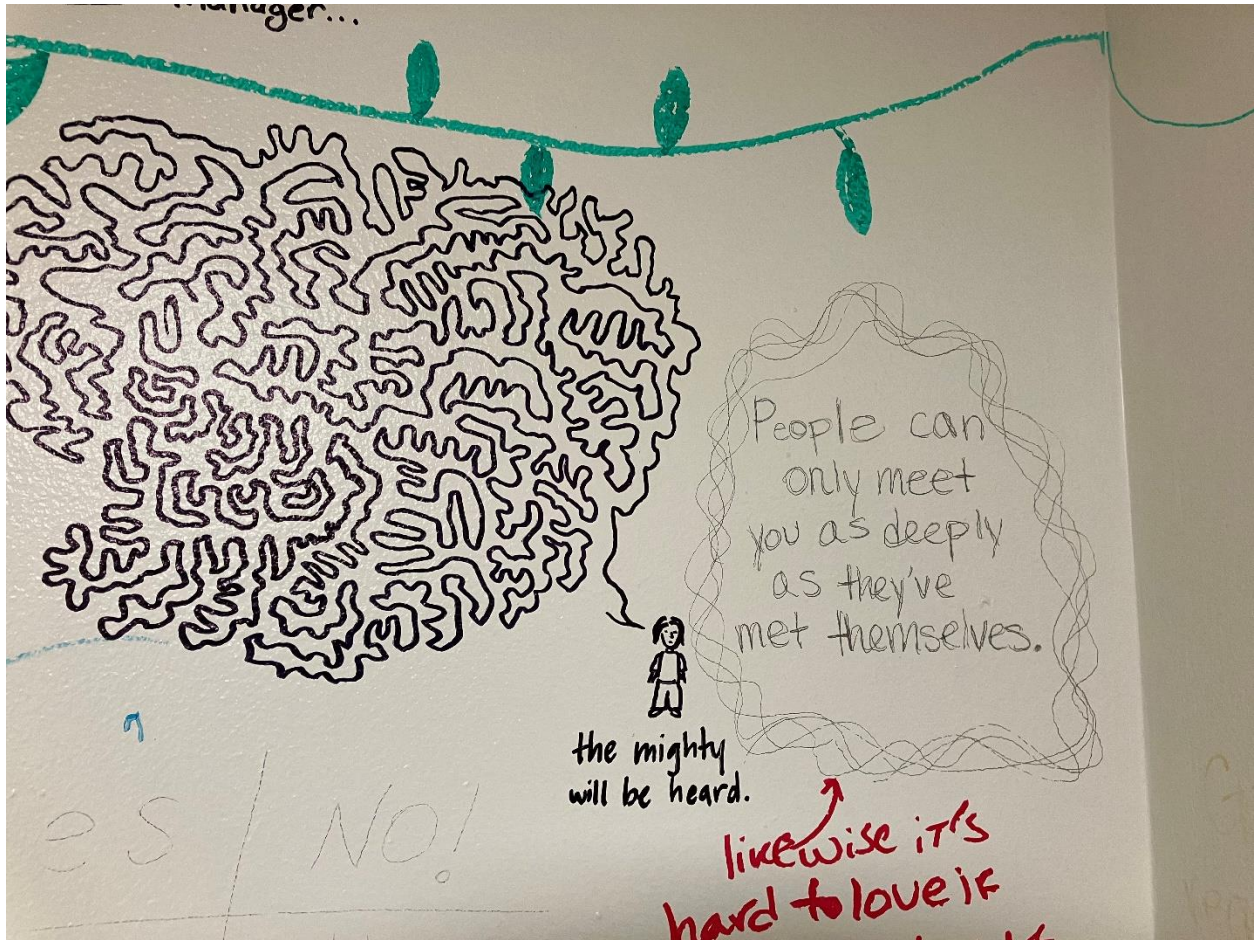 manager...
People can
only meet
you as deeply
as they've
met themselves.
the mighty
will be heard.
es / NO!
likewise it's
hard to love if